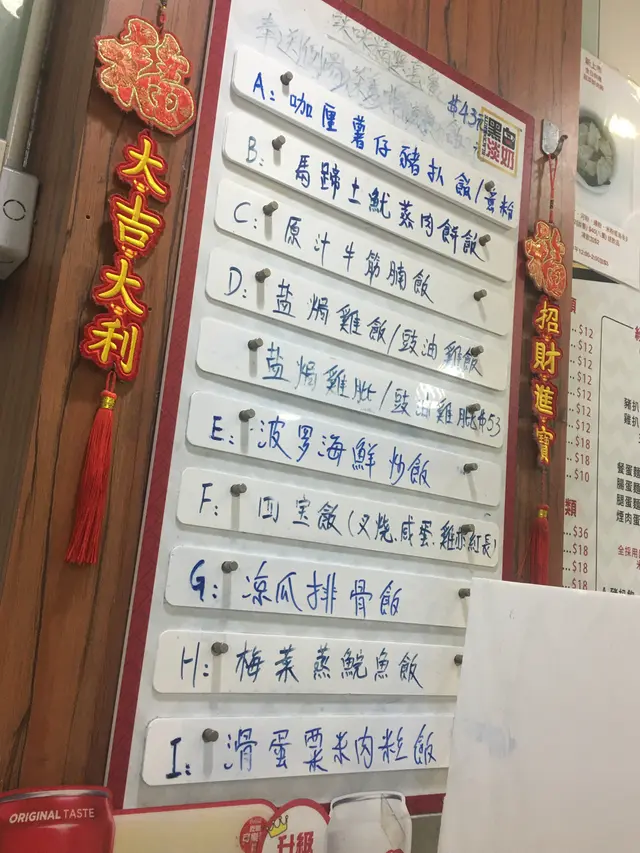 大吉大利
$43
A: 咖厘薯仔豬扒飯/蛋粉
B: 馬蹄土魷蒸肉餅飯
C: 原汁牛筋腩飯
D: 盐焗雞飯/豉油雞飯
盐焗雞肶/豉油雞肶$53
E: 波罗海鮮炒飯
F: 四宝飯(叉燒.咸蛋.雞亦紅長)
G: 凉瓜排骨飯
H: 梅菜蒸鯇魚飯
I: 滑蛋粟米肉粒飯
招財進寶
$12
$12
$12
$12
$12
$12
$18
$18
$10
類
$36
$18
$18
$18
豬扒
雞扒
餐蛋麵
腸蛋麵
腿蛋麵
煙肉蛋
全採用
ORIGINAL TASTE
升級